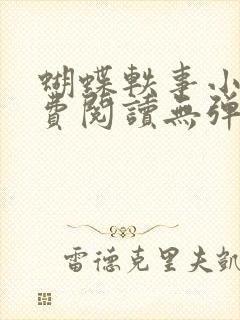 蝴蝶軼事小
費閱讀無彈
雷德克里夫凱